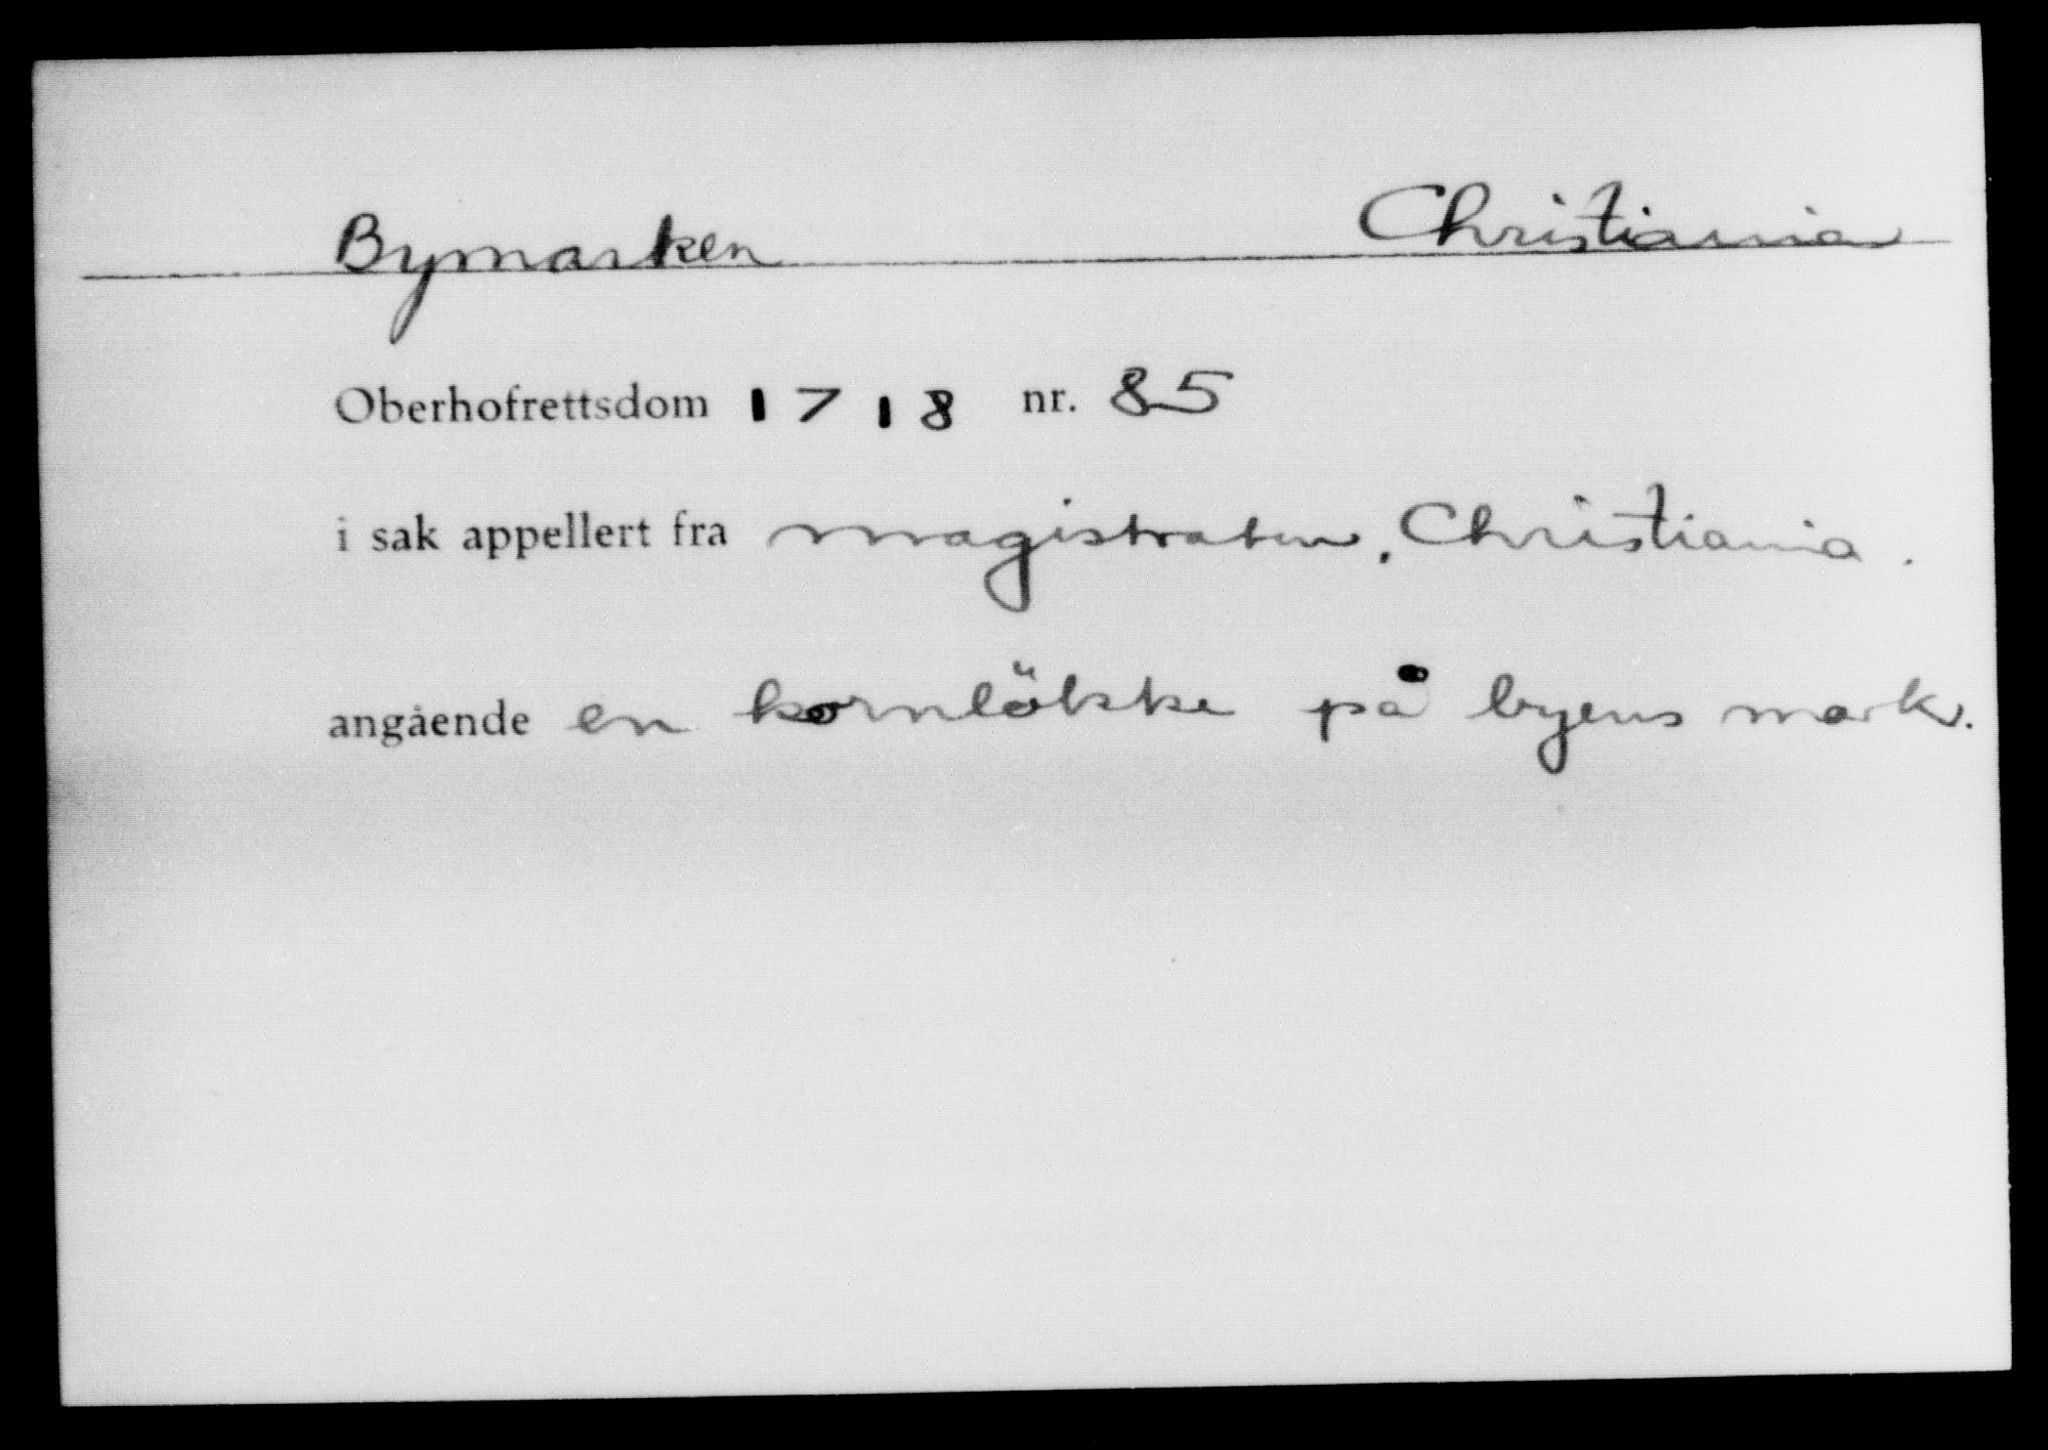 Bymarken Christiania
Oberhofrettsdom 1718 nr. 85
i sak appellert fra magistraten, Christiania.
angående en kornlökke på byens mark.